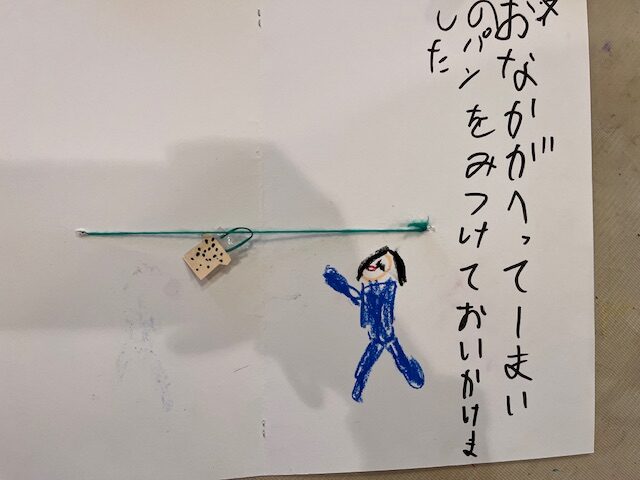 おなかがへって一まい
のパンをみつけておいかけま
した